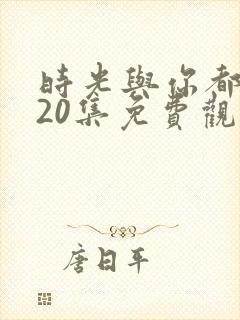 時光與你都
20集免費觀
唐日平